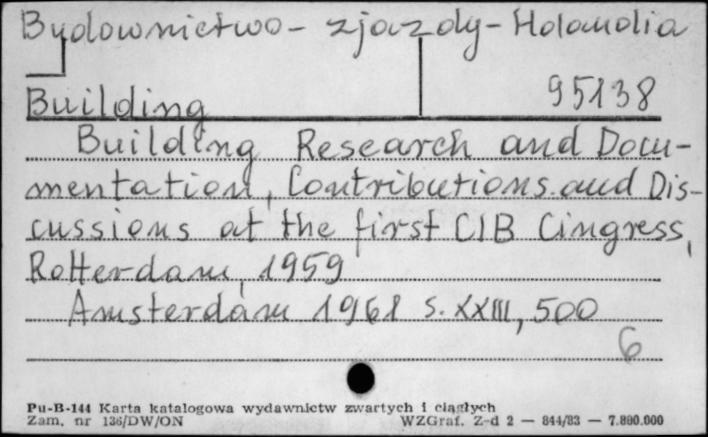 Budownictwo - zjazdy - Holandia
Building 95138
Building Research and Docu-
mentation, Contributions and Dis-
cussions at the first CIB Cingress,
Rotterdam, 1959
Amsterdam 1961 s. XXIII, 500
6
Pu-B-144 Karta katalogowa wydawnictw zwartych i ciągłych
Zam. nr 136/DW/ON WZGraf. Z-d 2 — 844/83 — 7.800.000